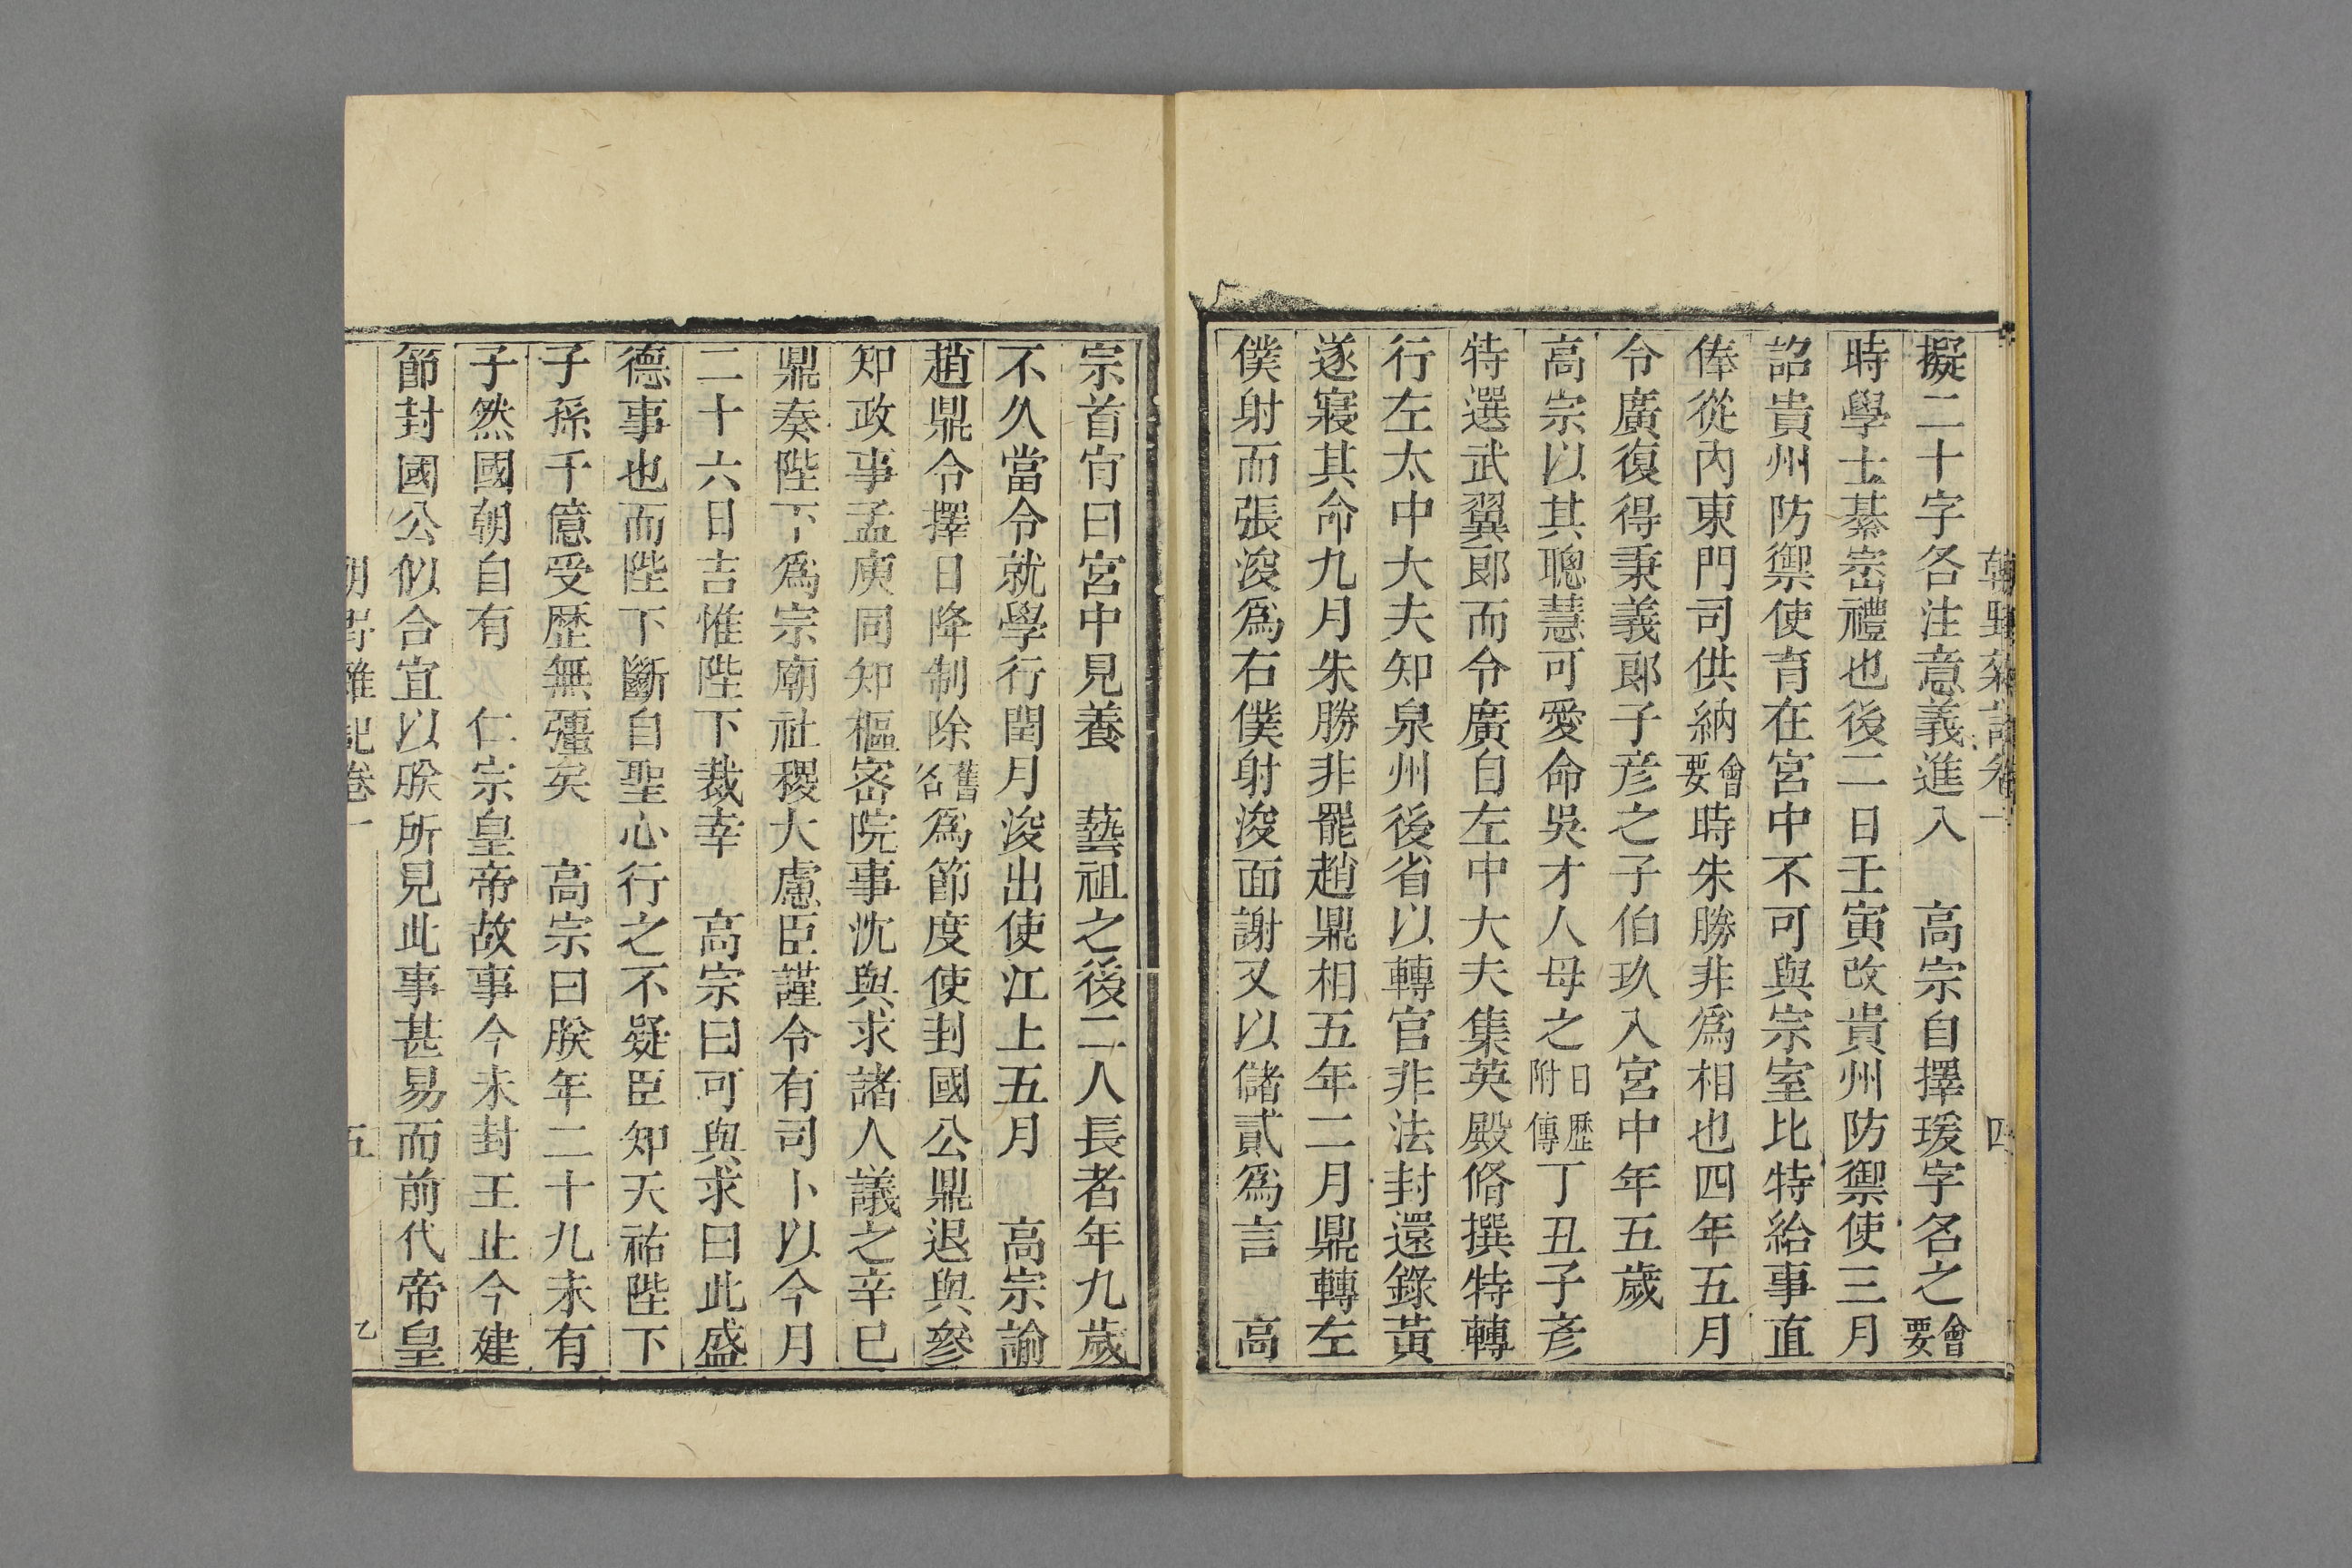 擬二十字各注意義進入　高宗自擇瑗字名之會要
時學士綦崈禮也後二日壬寅改貴州防禦使三月
詔貴州防禦使育在宮中不可與宗室比特給事直
俸從內東門司供納會要時朱勝非爲相也四年五月
令廣復得秉義郞子彥之子伯玖入宮中年五歲
高宗以其聰慧可愛命吳才人母之日歷附傳丁丑子彥
特選武翼郞而令廣自左中大夫集英殿脩撰特轉
行左太中大夫知泉州後省以轉官非法封還錄黃
遂寢其命九月朱勝非罷趙鼎相五年二月鼎轉左
僕射而張浚爲右僕射浚面謝又以儲貳爲言　高
宗首肯曰宮中見養　藝祖之後二人長者年九歲
不久當令就學行閏月浚出使江上五月　高宗諭
趙鼎令擇日降制除舊名爲節度使封國公鼎退與參
知政事孟庾同知樞密院事沈與求諸人議之辛巳
鼎奏陛下爲宗廟社稷大慮臣謹令有司卜以今月
二十六日吉惟陛下裁幸　高宗曰可與求曰此盛
德事也而陛下斷自聖心行之不疑臣知天祐陛下
子孫千億受歷無彊矣　高宗曰朕年二十九未有
子然國朝自有　仁宗皇帝故事今未封王止今建
節封國公似合宜以朕所見此事甚易而前代帝皇
朝野雜記卷一　五　乙